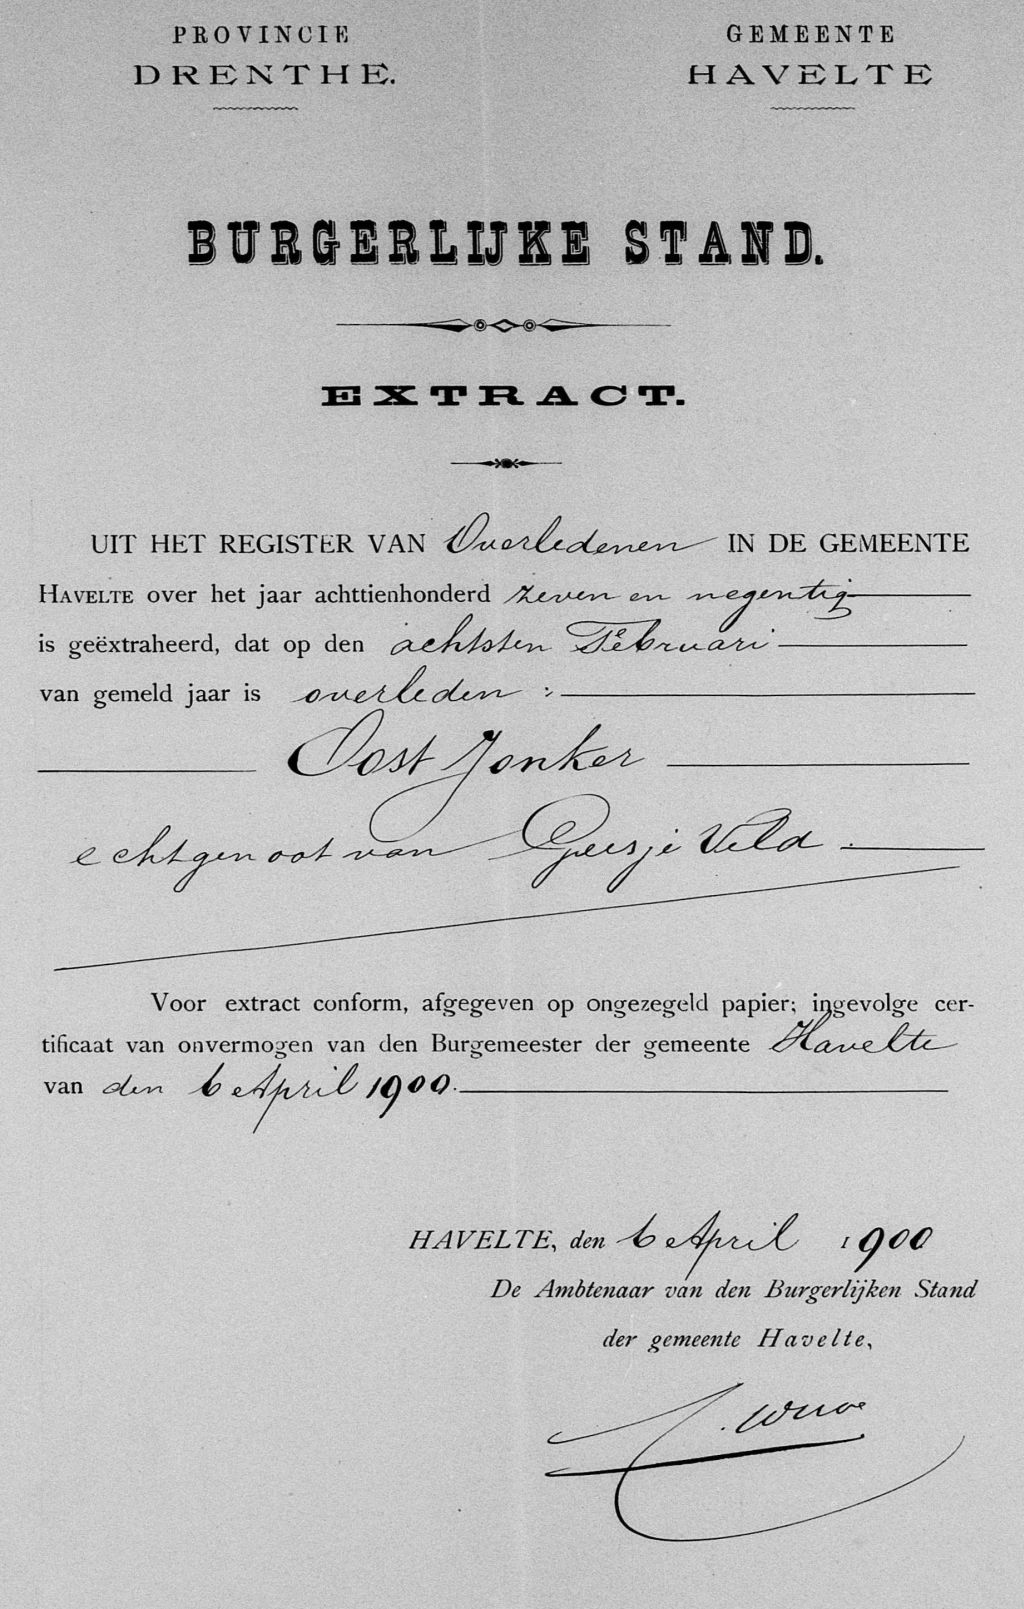 PROVINCIE
DRENTHE.
GEMEENTE
HAVELTE
BURGERLIJKE STAND.
EXTRACT.
UIT HET REGISTER VAN Overledenen IN DE GEMEENTE
HAVELTE over het jaar achttienhonderd zeven en negentig
is geëxtraheerd, dat op den achtsten Februari
van gemeld jaar is overleden :
Oost Jonker
echtgenoot van Geesje Veld.
Voor extract conform, afgegeven op ongezegeld papier; ingevolge cer-
tificaat van onvermogen van den Burgemeester der gemeente Havelte
van den 6 April 1900.
HAVELTE, den 6 April 1900
De Ambtenaar van den Burgerlijken Stand
der gemeente Havelte,